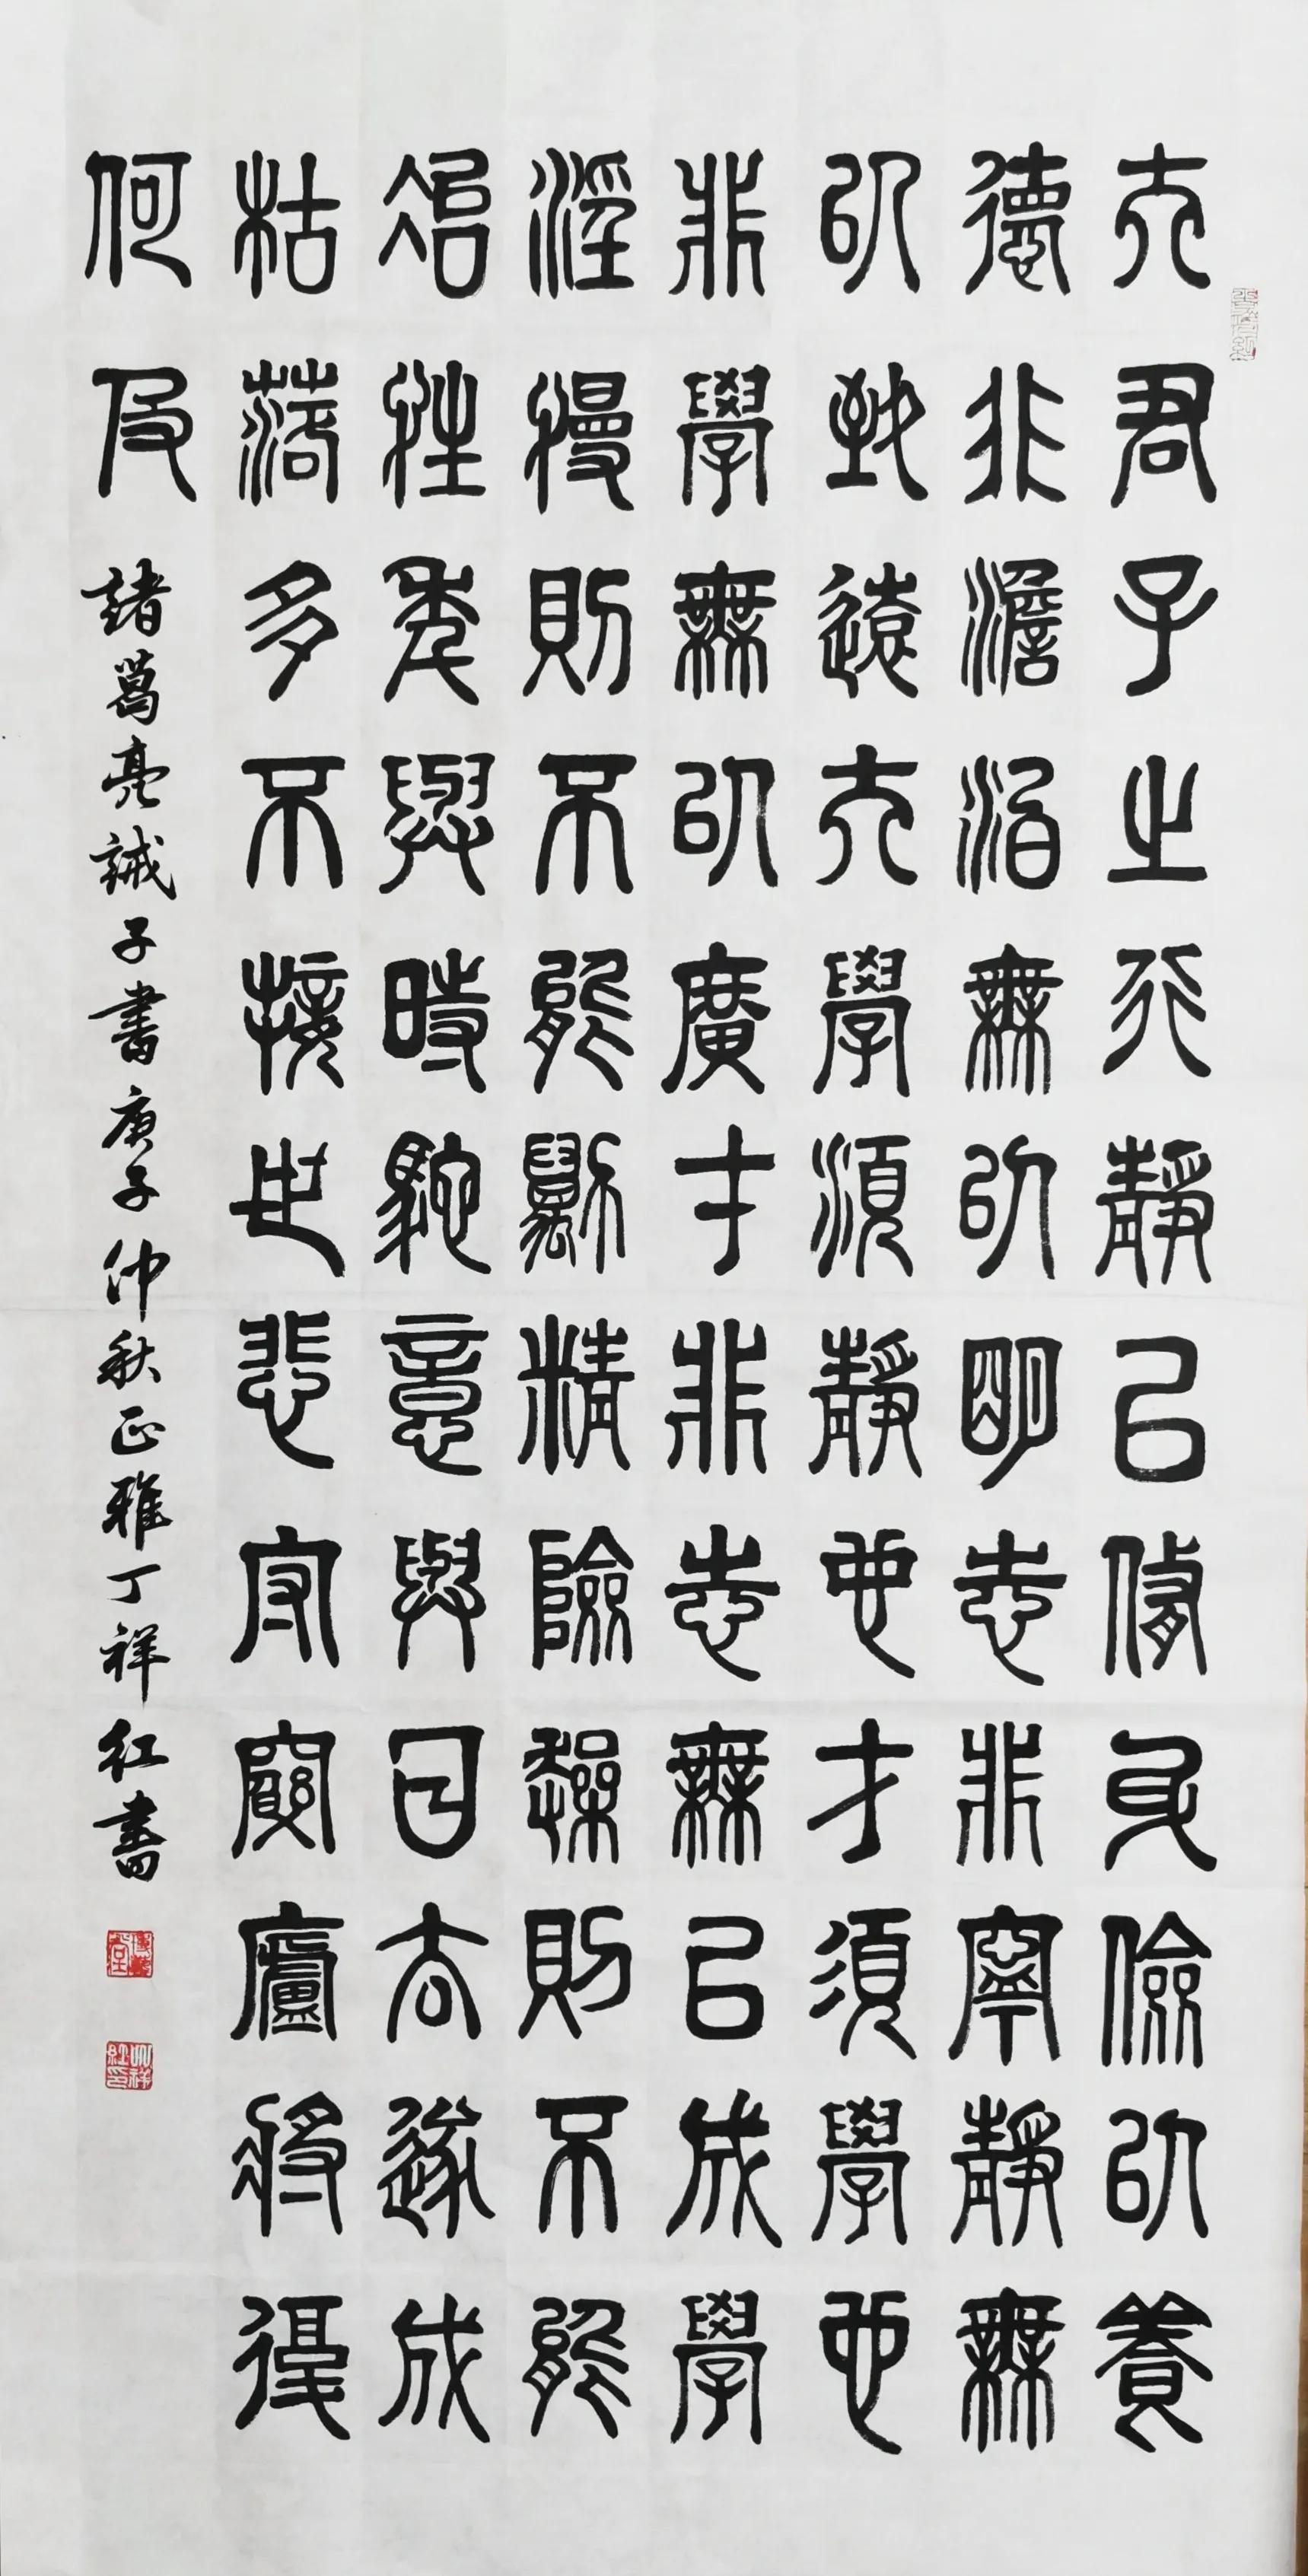 夫君子之行靜以修身儉以養
德非澹泊無以明志非寧靜無
以致遠夫學須靜也才須學也
非學無以廣才非志無以成學
淫慢則不能勵精險躁則不能
冶性年與時馳意與日去遂成
枯落多不接世悲守窮廬將復
何及
諸葛亮誡子書庚子仲秋正雅丁祥红書